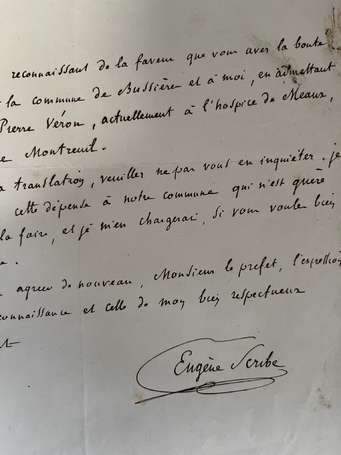 reconnaissant de la faveur que vous avez la bonté
la commune de Bussière et à moi, en admettant
Pierre Véron, actuellement à l'hospice de Meaux,
Montreuil.
translation, veuillez ne pas vous en inquiéter. je
cette dépense à notre commune qui n'est guère
la faire, et je m'en chargerai, si vous voulez bien
agréer de nouveau, Monsieur le préfet, l'expression
connaissance et celle de mon bien respectueux
Eugène Scribe